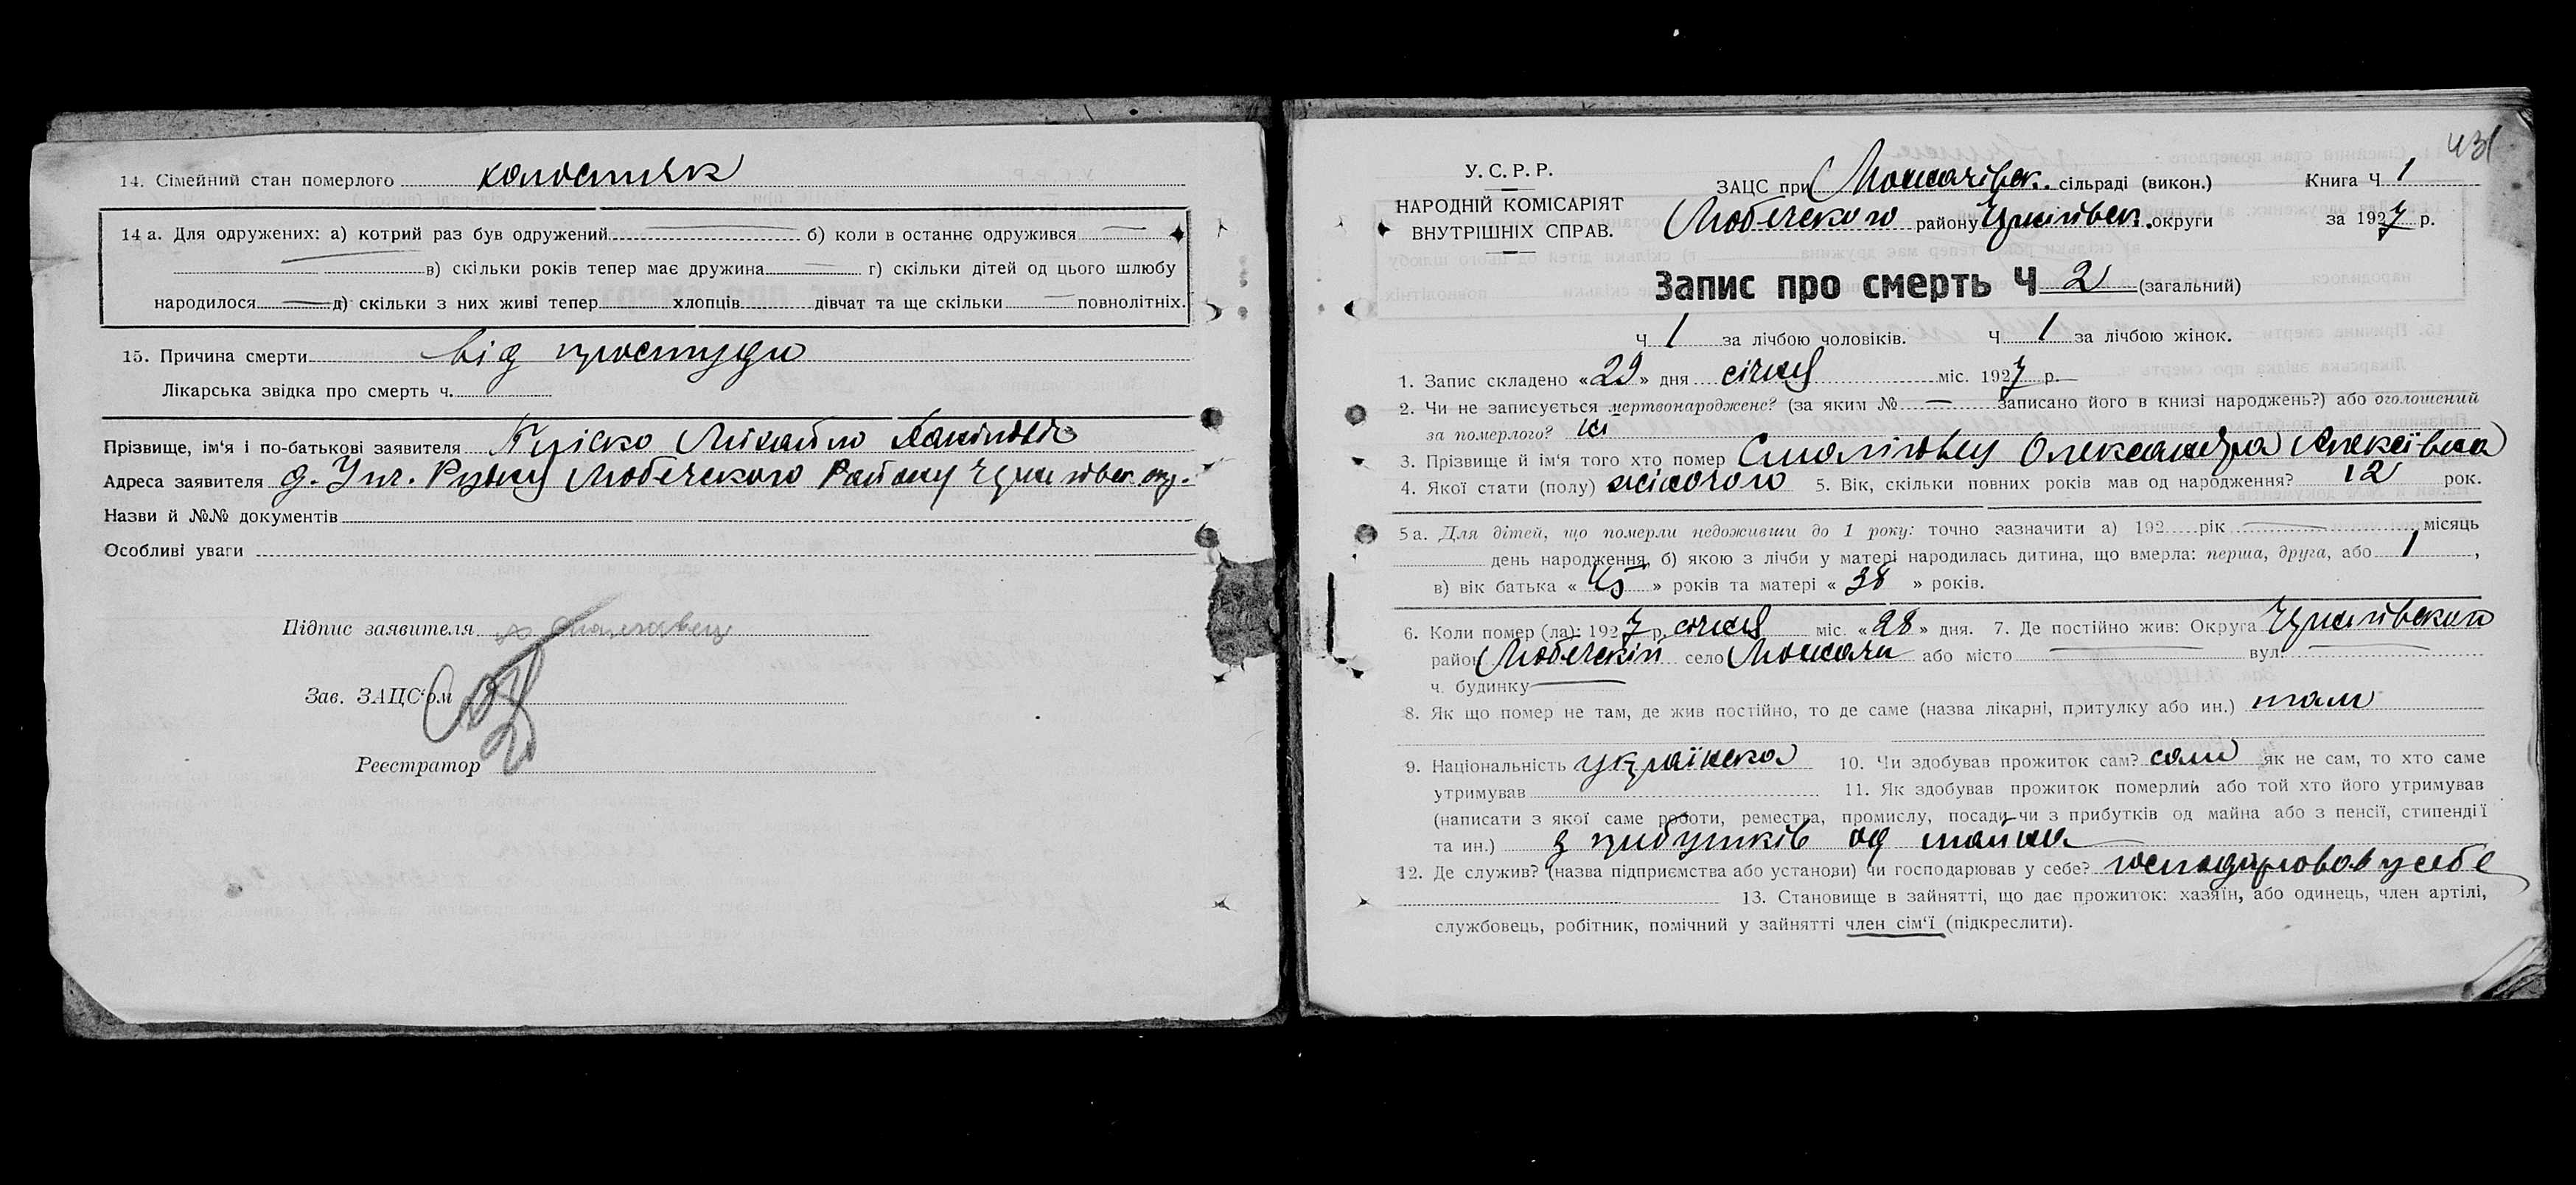 14. Сімейний стан померлого холостяк
14 а. Для одружених: а) котрий раз був одружений б) коли в останнє одружився
в) скільки років тепер має дружина г) скільки дітей од цього шлюбу
народилося д) скільки з них живі тепер хлопців дівчат та ще скільки повнолітніх.
15. Причина смерти від простуди
Лікарська звідка про смерть ч.
Прізвище, ім'я і по-батькові заявителя Михайло
Адреса заявителя Любечского Району
Назви й №№ документів
Особливі уваги
Підпис заявителя
Зав. ЗАЦС'ом
Реєстратор
431
У. С. Р. Р.
НАРОДНІЙ КОМІСАРІЯТ
ВНУТРІШНІХ СПРАВ.
ЗАЦС при сільраді (викон.) Книга Ч 1
Любечского району округи за 1927 р.
Запис про смерть Ч 2 (загальний)
Ч 1 за лічбою чоловіків. Ч 1 за лічбою жінок.
1. Запис складено «29» дня січня міс. 1927 р.
2. Чи не записується мертвонароджене? (за яким № — записано його в книзі народжень?) або оголошений
за померлого? ні
3. Прізвище й ім'я того хто помер Олександра Алексіївна
4. Якої стати (полу) жіночого 5. Вік, скільки повних років мав од народження? 12 рок.
5 а. Для дітей, що померли недоживши до 1 року: точно зазначити а) 192 рік місяць
день народження, б) якою з лічби у матері народилась дитина, що вмерла: перша, друга, або 1,
в) вік батька «45» років та матері «38» років.
6. Коли помер (ла): 1927 р. січня міс. «28» дня. 7. Де постійно жив: Округа
район Любечскій село або місто вул.
ч. будинку
8. Як що помер не там, де жив постійно, то де саме (назва лікарні, притулку або ин.) там
9. Національність українска 10. Чи здобував прожиток сам? сам як не сам, то хто саме
утримував 11. Як здобував прожиток померлий або той хто його утримував
(написати з якої саме роботи, ремества, промислу, посади чи з прибутків од майна або з пенсії, стипендії
та ин.) з прибутків од майна
12. Де служив? (назва підприємства або установи) чи господарював у себе? господарював у себе
13. Становище в зайнятті, що дає прожиток: хазяїн, або одинець, член артілі,
службовець, робітник, помічний у зайнятті член сім'ї (підкреслити).